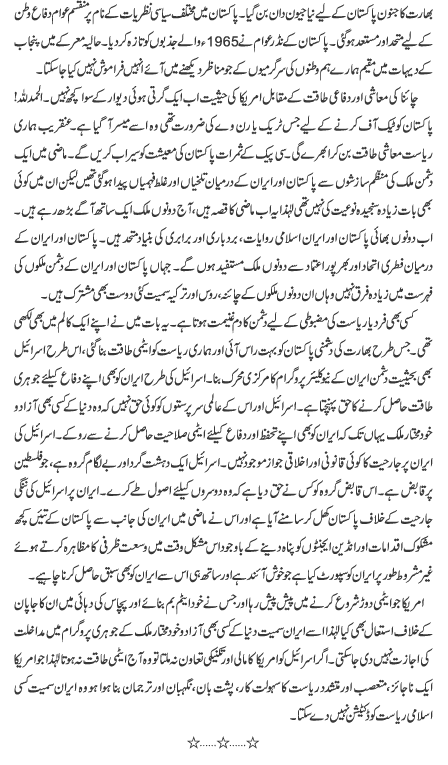 بھارت کا جنون پاکستان کے لیے نیا جیون دان بن گیا۔ پاکستان میں مختلف سیاسی نظریات کے نام پر منقسم عوام دفاع وطن
کے لیے متحد اور مستعد ہو گئی۔ پاکستان کے نڈر عوام نے 1965ء والے جذبوں کو تازہ کر دیا۔ حالیہ معرکے میں پنجاب
کے دیہات میں مقیم ہمارے ہم وطنوں کی سرگرمیوں کے جو مناظر دیکھنے میں آئے انہیں فراموش نہیں کیا جا سکتا۔
چائنا کی معاشی اور دفاعی طاقت کے مقابل امریکا کی حیثیت اب ایک گرتی ہوئی دیوار کے سوا کچھ نہیں۔ الحمدللہ!
پاکستان کو ٹیک آف کرنے کے لیے جس ٹریک یا رن وے کی ضرورت تھی وہ اسے میسر آ گیا ہے۔ عنقریب ہماری
ریاست معاشی طاقت بن کر ابھرے گی۔ سی پیک کے ثمرات پاکستان کی معیشت کو سیراب کریں گے۔ ماضی میں ایک
دشمن ملک کی منظم سازشوں سے پاکستان اور ایران کے درمیان تلخیاں اور غلط فہمیاں پیدا ہو گئی تھیں لیکن ان میں کوئی
بھی بات زیادہ سنجیدہ نوعیت کی نہیں تھی لہٰذا یہ اب ماضی کا قصہ ہیں، آج دونوں ملک ایک ساتھ آگے بڑھ رہے ہیں۔
اب دونوں بھائی پاکستان اور ایران اسلامی روایات، بردباری اور برابری کی بنیاد متحد ہیں۔ پاکستان اور ایران کے
درمیان فطری اتحاد اور بھرپور اعتماد سے دونوں ملک مستفید ہوں گے۔ جہاں پاکستان اور ایران کے دشمن ملکوں کی
فہرست میں زیادہ فرق نہیں وہاں ان دونوں ملکوں کے چائنہ، روس اور ترکیہ سمیت کئی دوست بھی مشترک ہیں۔
کسی بھی فرد یا ریاست کی مضبوطی کے لیے دشمن کا دم غنیمت ہوتا ہے۔ یہ بات میں نے اپنے ایک کالم میں بھی لکھی
تھی۔ جس طرح بھارت کی دشمنی پاکستان کو بہت راس آئی اور ہماری ریاست کو ایٹمی طاقت بنا گئی، اس طرح اسرائیل
بھی بحیثیت دشمن ایران کے نیوکلیئر پروگرام کا مرکزی محرک بنا۔ اسرائیل کی طرح ایران کو بھی اپنے دفاع کیلئے جوہری
طاقت حاصل کرنے کا حق پہنچتا ہے۔ اسرائیل اور اس کے عالمی سرپرستوں کو کوئی حق نہیں کہ وہ دنیا کے کسی بھی آزاد و
خود مختار ملک یہاں تک کہ ایران کو بھی اپنے تحفظ اور دفاع کیلئے ایٹمی صلاحیت حاصل کرنے سے روکے۔ اسرائیل کی
ایران پر جارحیت کا کوئی قانونی اور اخلاقی جواز موجود نہیں۔ اسرائیل ایک دہشت گرد اور بے لگام گروہ ہے، جو فلسطین
پر قابض ہے۔ اس قابض گروہ کو کس نے حق دیا ہے کہ وہ دوسروں کیلئے اصول طے کرے۔ ایران پر اسرائیل کی ننگی
جارحیت کے خلاف پاکستان کھل کر سامنے آیا ہے اور اس نے ماضی میں ایران کی جانب سے پاکستان کے تئیں کچھ
مشکوک اقدامات اور انڈین ایجنٹوں کو پناہ دینے کے باوجود اس مشکل وقت میں وسعت ظرفی کا مظاہرہ کرتے ہوئے
غیر مشروط طور پر ایران کو سپورٹ کیا ہے جو خوش آئند ہے اور ساتھ ہی اس سے ایران کو بھی سبق حاصل کرنا چاہیے۔
امریکا جو ایٹمی دوڑ شروع کرنے میں پیش پیش رہا اور جس نے خود ایٹم بم بنائے اور پچاس کی دہائی میں ان کا جاپان
کے خلاف استعمال بھی کیا لہٰذا اسے ایران سمیت دنیا کے کسی بھی آزاد و خود مختار ملک کے جوہری پروگرام میں مداخلت
کی اجازت نہیں دی جا سکتی۔ اگر اسرائیل کو امریکا کا مالی اور تکنیکی تعاون نہ ملتا تو وہ آج ایٹمی طاقت نہ ہوتا لہٰذا جو امریکا
ایک ناجائز، متعصب اور متشدد ریاست کا سہولت کار، پشت بان، نگہبان اور ترجمان بنا ہوا ہو وہ ایران سمیت کسی
اسلامی ریاست کو ڈکٹیشن نہیں دے سکتا۔
☆......☆......☆